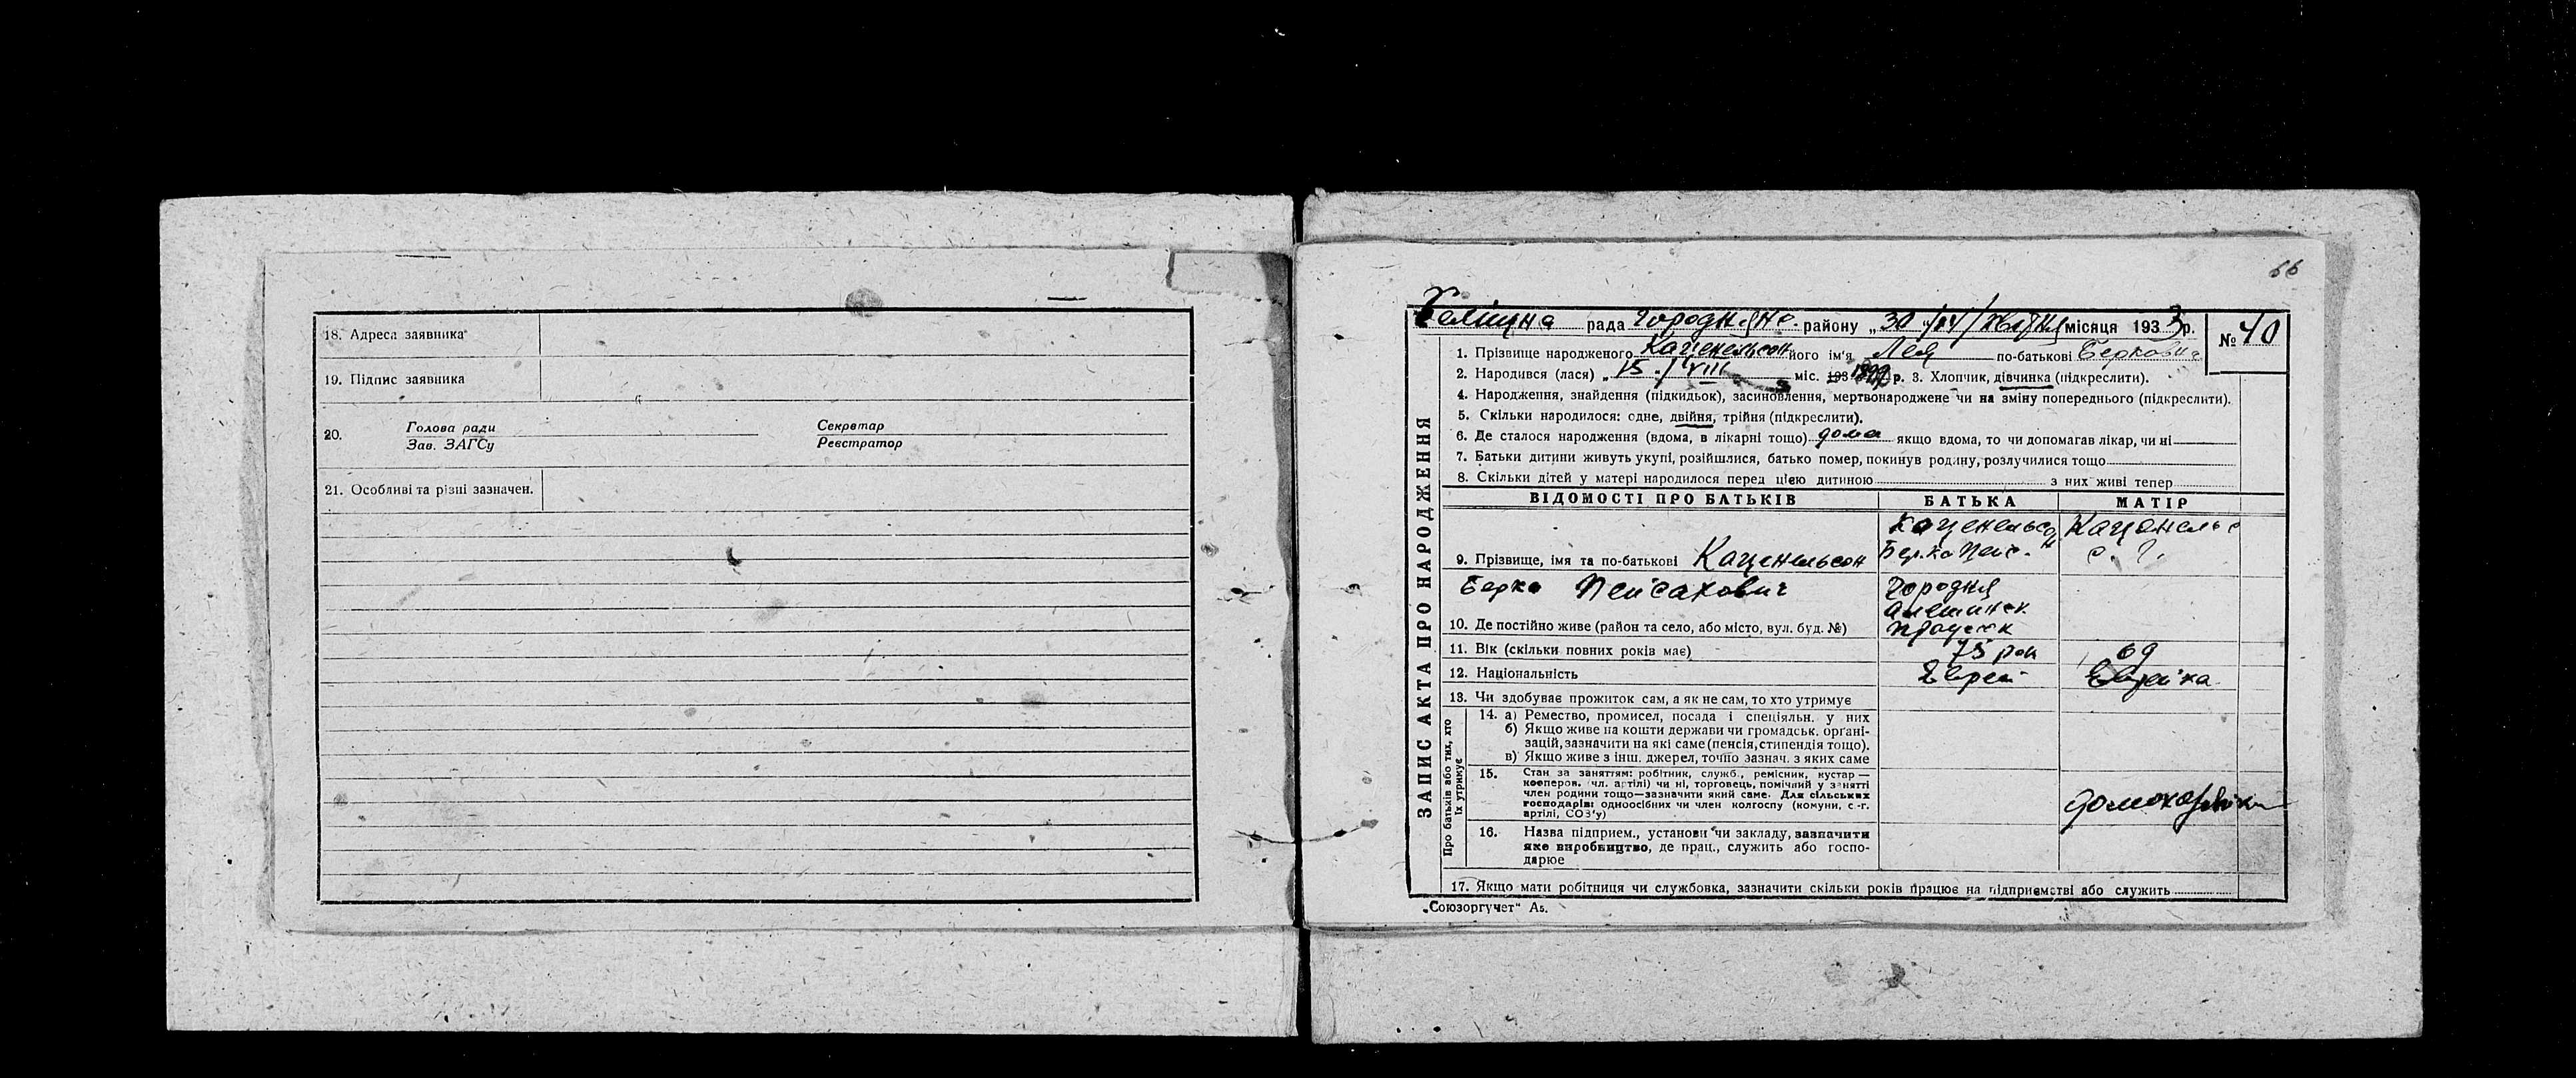 18. Адреса заявника
19. Підпис заявника
20. Голова ради Секретар
Зав. ЗАГСу Реєстратор
21. Особливі та різні зазначен.
66
рада район у „30 місяця 1933 р. № 40
1. Прізвище народженого Каценельсон його ім'я Лея по-батькові Берковна
2. Народився (лася) „15 / VIII міс. 193 р. 3. Хлопчик, дівчинка (підкреслити).
4. Народження, знайдення (підкидьок), засиновлення, мертвонароджене чи на зміну попереднього (підкреслити).
5. Скільки народилося: одне, двійня, трійня (підкреслити).
6. Де сталося народження (вдома, в лікарні тощо) дома якщо вдома, то чи допомагав лікар, чи ні
7. Батьки дитини живуть укупі, розійшлися, батько помер, покинув родину, розлучилися тощо
8. Скільки дітей у матері народилося перед цією дитиною з них живі тепер
ЗАПИС АКТА ПРО НАРОДЖЕННЯ
ВІДОМОСТІ ПРО БАТЬКІВ БАТЬКА МАТІР
Каценельсон Каценельс
9. Прізвище, імя та по-батькові Каценельсон Берка Пейс.
Берко Пейсахович Городня
10. Де постійно живе (район та село, або місто, вул. буд. №)
11. Вік (скільки повних років має) 75 рок 69
12. Національність Еврей Еврейка
13. Чи здобуває прожиток сам, а як не сам, то хто утримує
Про батьків або тих, хто їх утримує
14. а) Ремество, промисел, посада і спеціяльн. у них
б) Якщо живе на кошти держави чи громадськ. органі-
зацій, зазначити на які саме (пенсія, стипендія тощо).
в) Якщо живе з інш. джерел, точно зазнач. з яких саме
15. Стан за заняттям: робітник, служб., ремісник, кустар —
кооперов. чл. артілі) чи ні, торговець, помічний у занятті
член родини тощо—зазначити який саме. Для сільських
господарів: одноосібних чи член колгоспу (комуни, с.-г.
артілі, СОЗ'у)
домохазяйка
16. Назва підприєм., установи чи закладу, зазначити
яке виробництво, де прац., служить або госпо-
дарює
17. Якщо мати робітниця чи службовка, зазначити скільки років працює на підприємстві або служить
„Союзоргучет" А5.